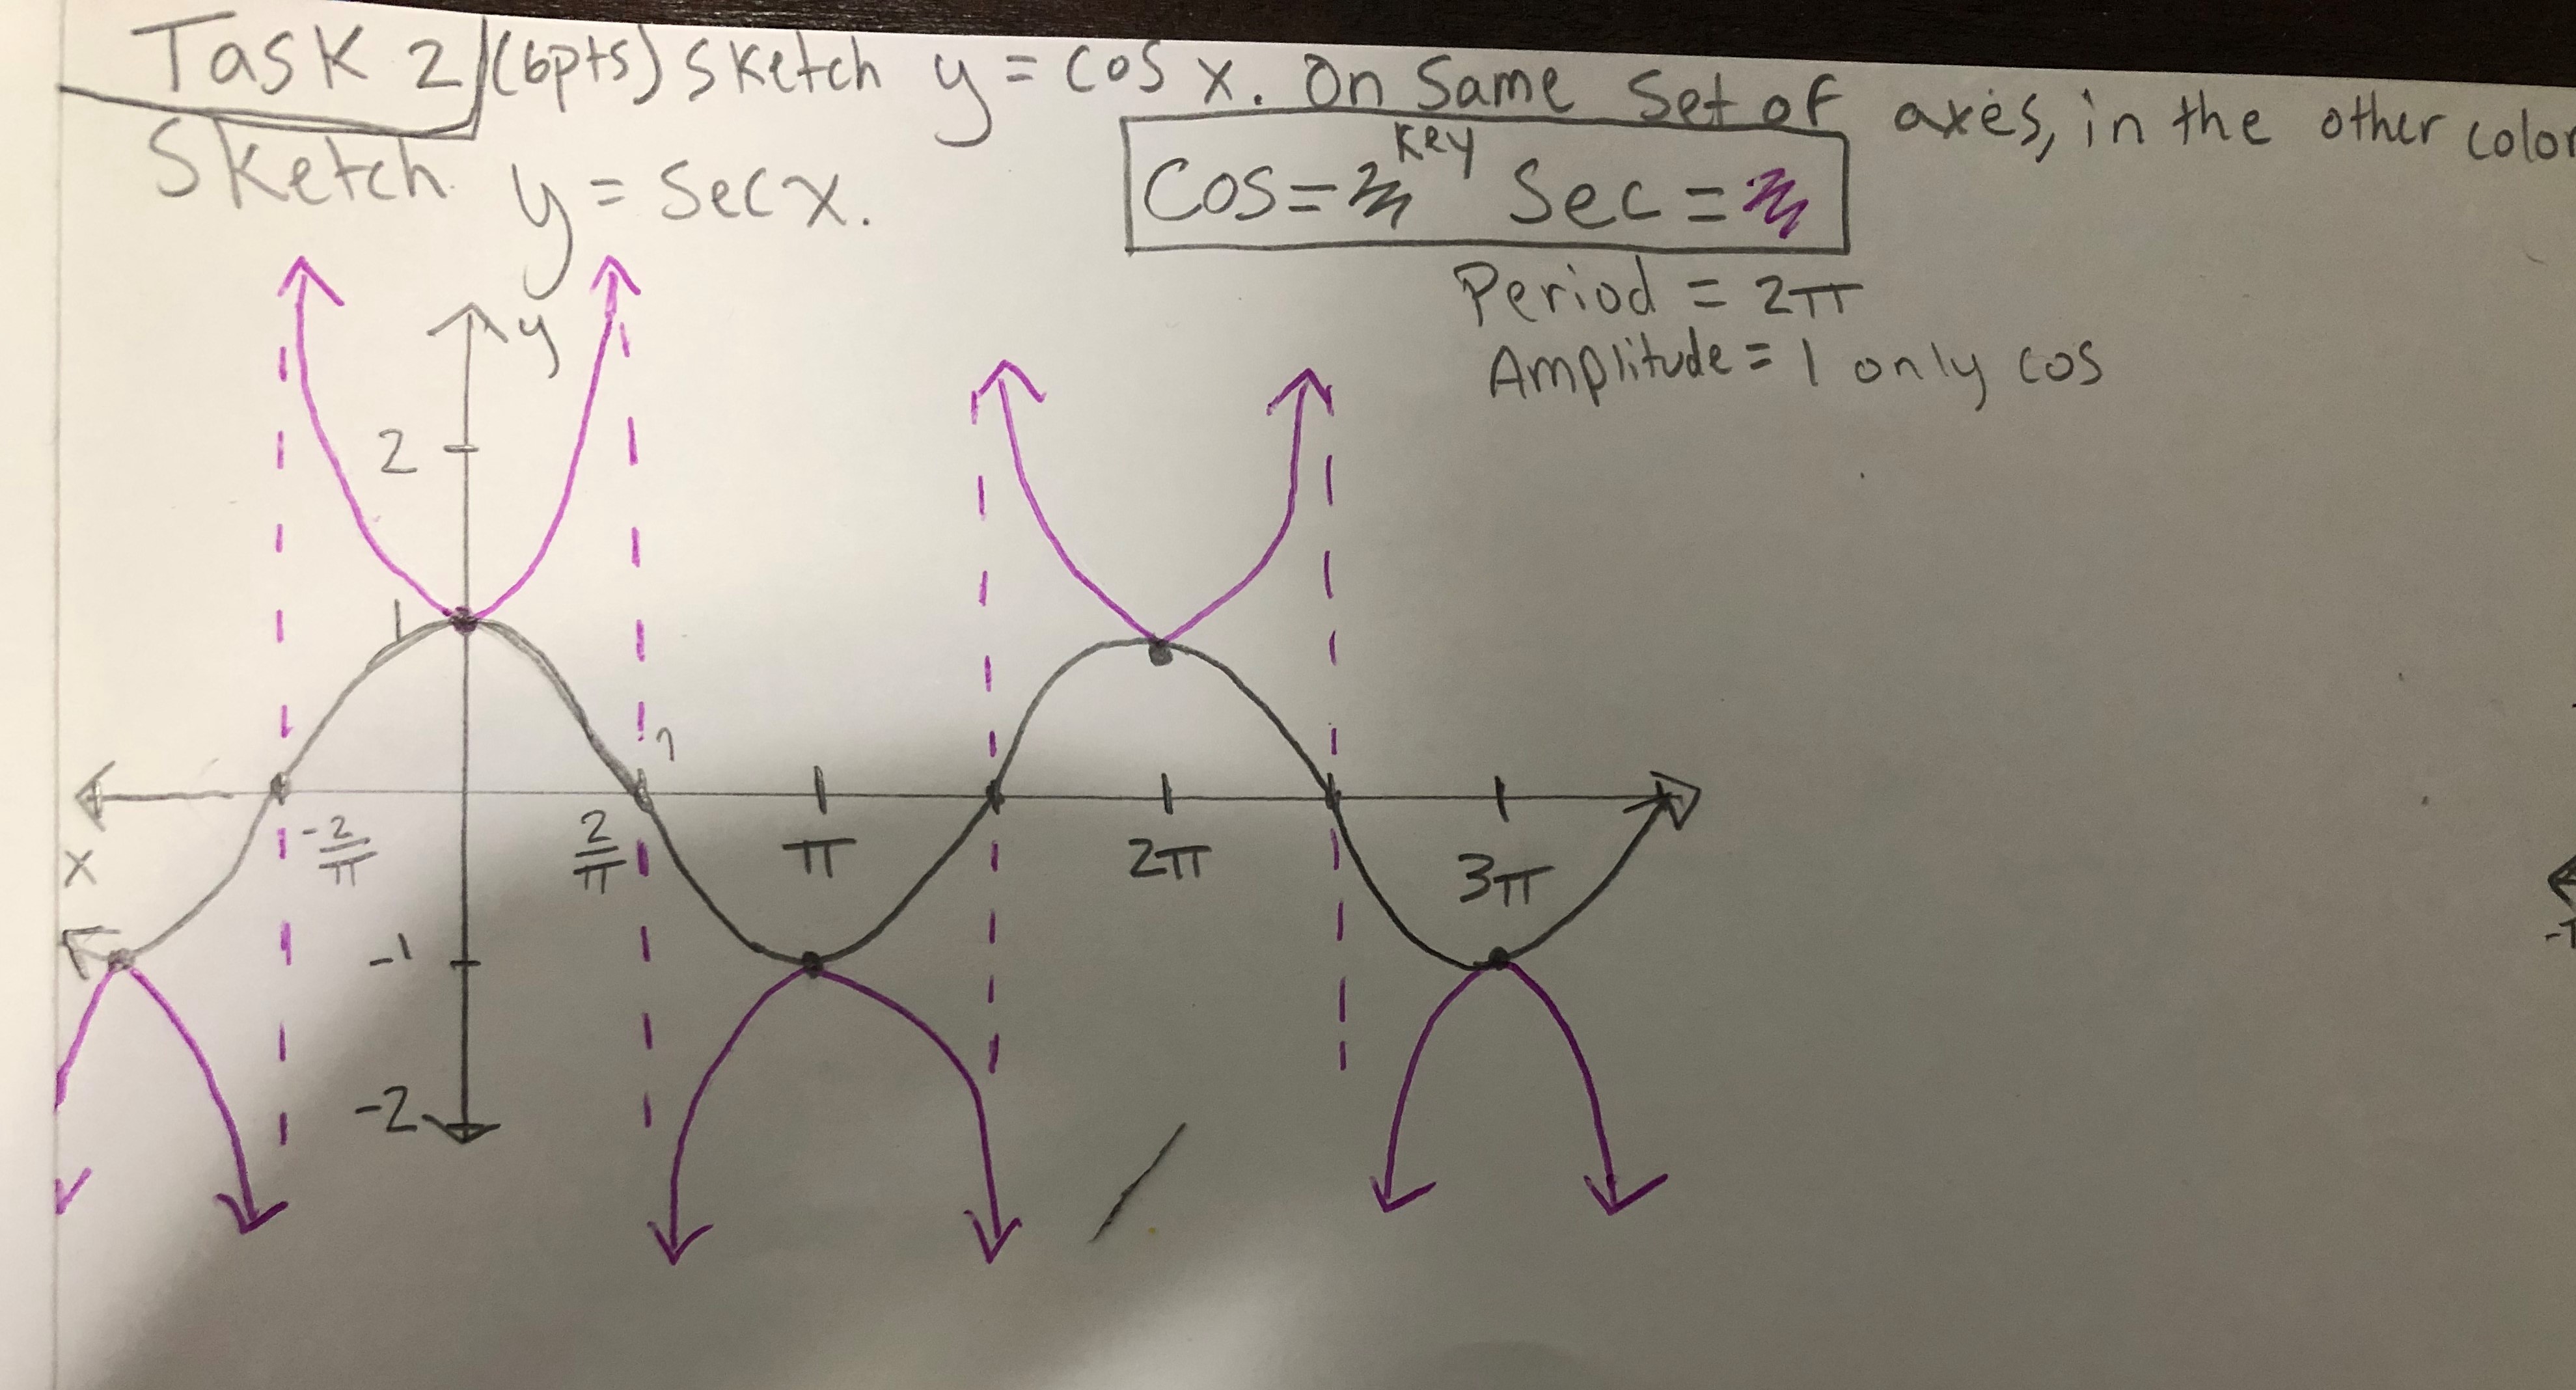 Task 2 (6pts) Sketch y = cos x. On Same Set of axes, in the other color
Sketch y = Sec x.
Key
Cos = Sec =
Period = 2π
Amplitude = 1 only cos
y
2
1
x
-2/π 2/π π 2π 3π
-1
-2